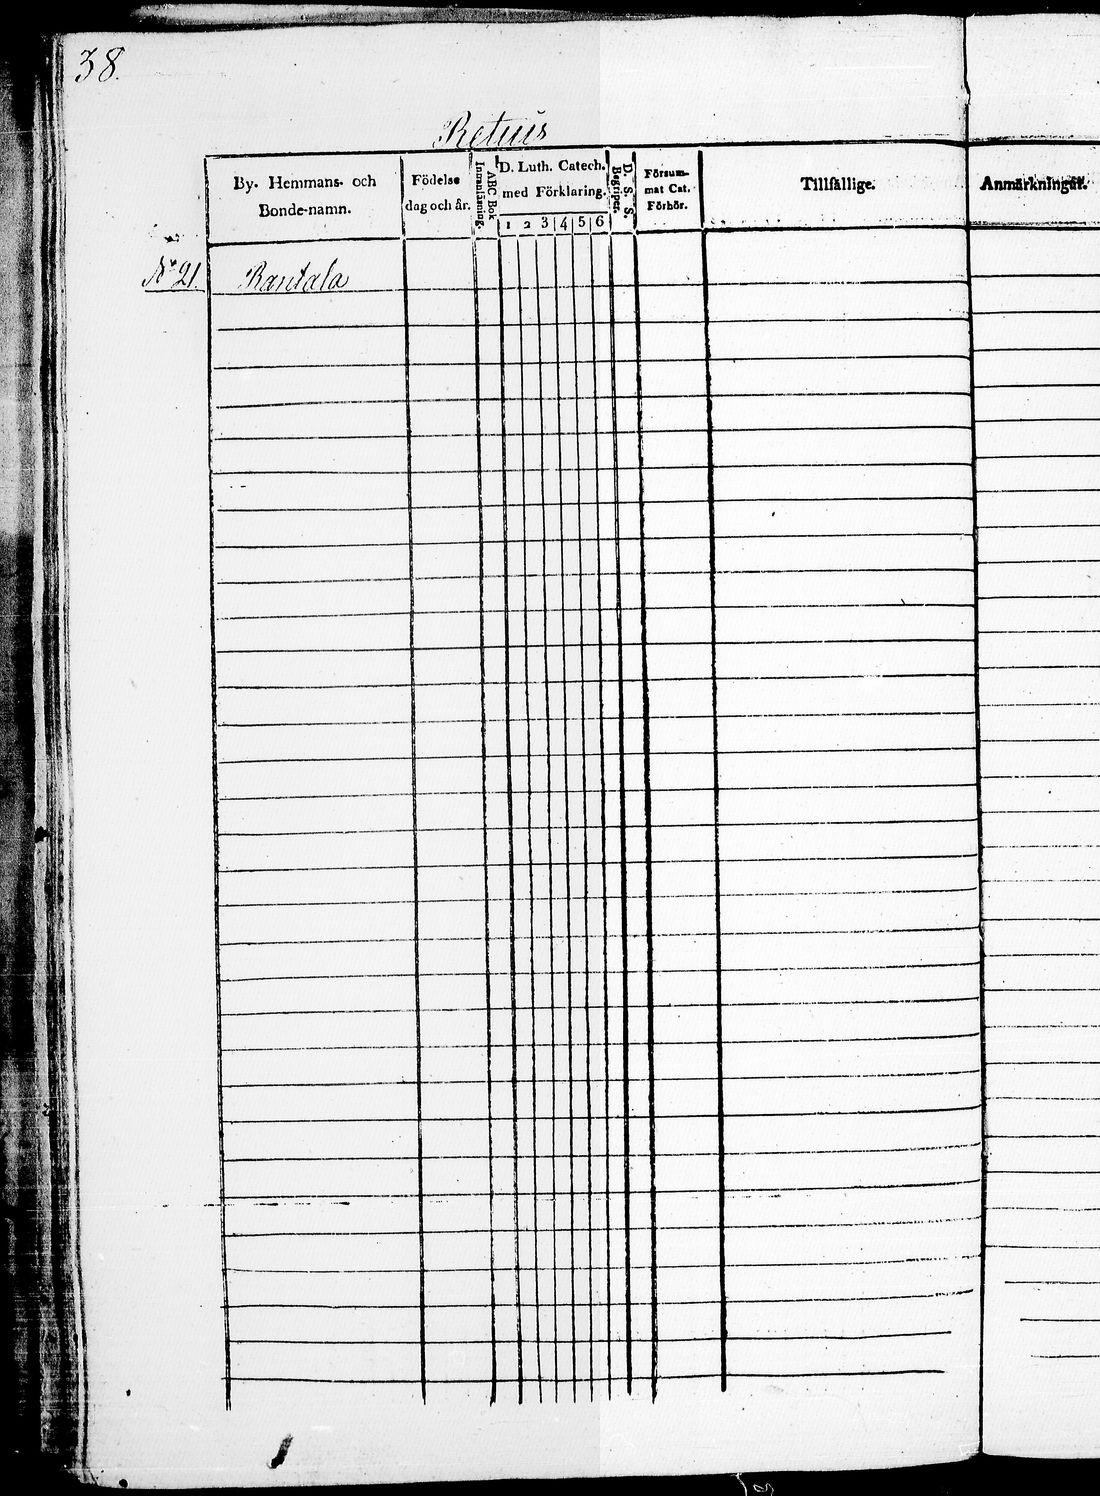 38.
Retuis
By. Hemmans- och
Bonde-namn.
Födelse
dag och år.
ABC Bok
Innanläsning.
D. Luth. Catech.
med Förklaring.
1 2 3 4 5 6
D. S. S.
Begriper.
Försum-
mat Cat.
Förhör.
Tillfällige.
Anmärkningar.
No 21. Rantala